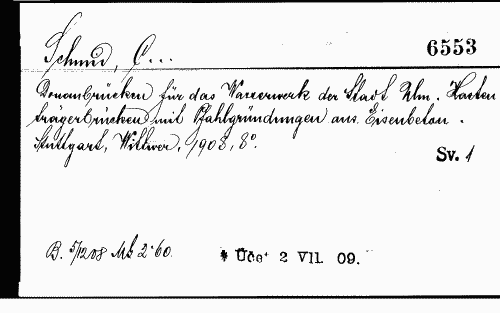 Schmid, C...
6553
Donaubrücken für das Wasserwerk der Stadt Ulm. Kasten
trägerbrücken mit Pfahlgründungen aus Eisenbeton.
Stuttgart, Wittwer, 1908, 8°.
Sv. 1
B. 5/12 08 Mk 2·60.
2 VII. 09.